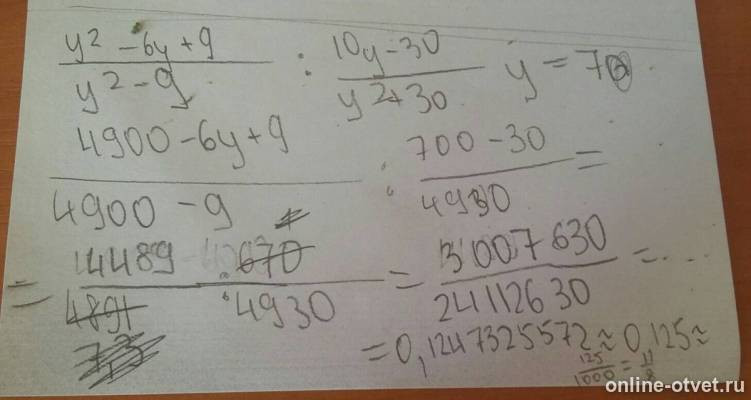 y² - 6y + 9 / y² - 9 : 10y - 30 / y² + 30 y = 70
4900 - 6y + 9 / 4900 - 9 : 700 - 30 / 4930 =
= 4489 / 4891 : 670 / 4930 = 3007630 / 24112630 = ...
7,3
= 0,1247325572 ≈ 0,125 ≈
125 / 1000 = 11 / 8
online-otvet.ru